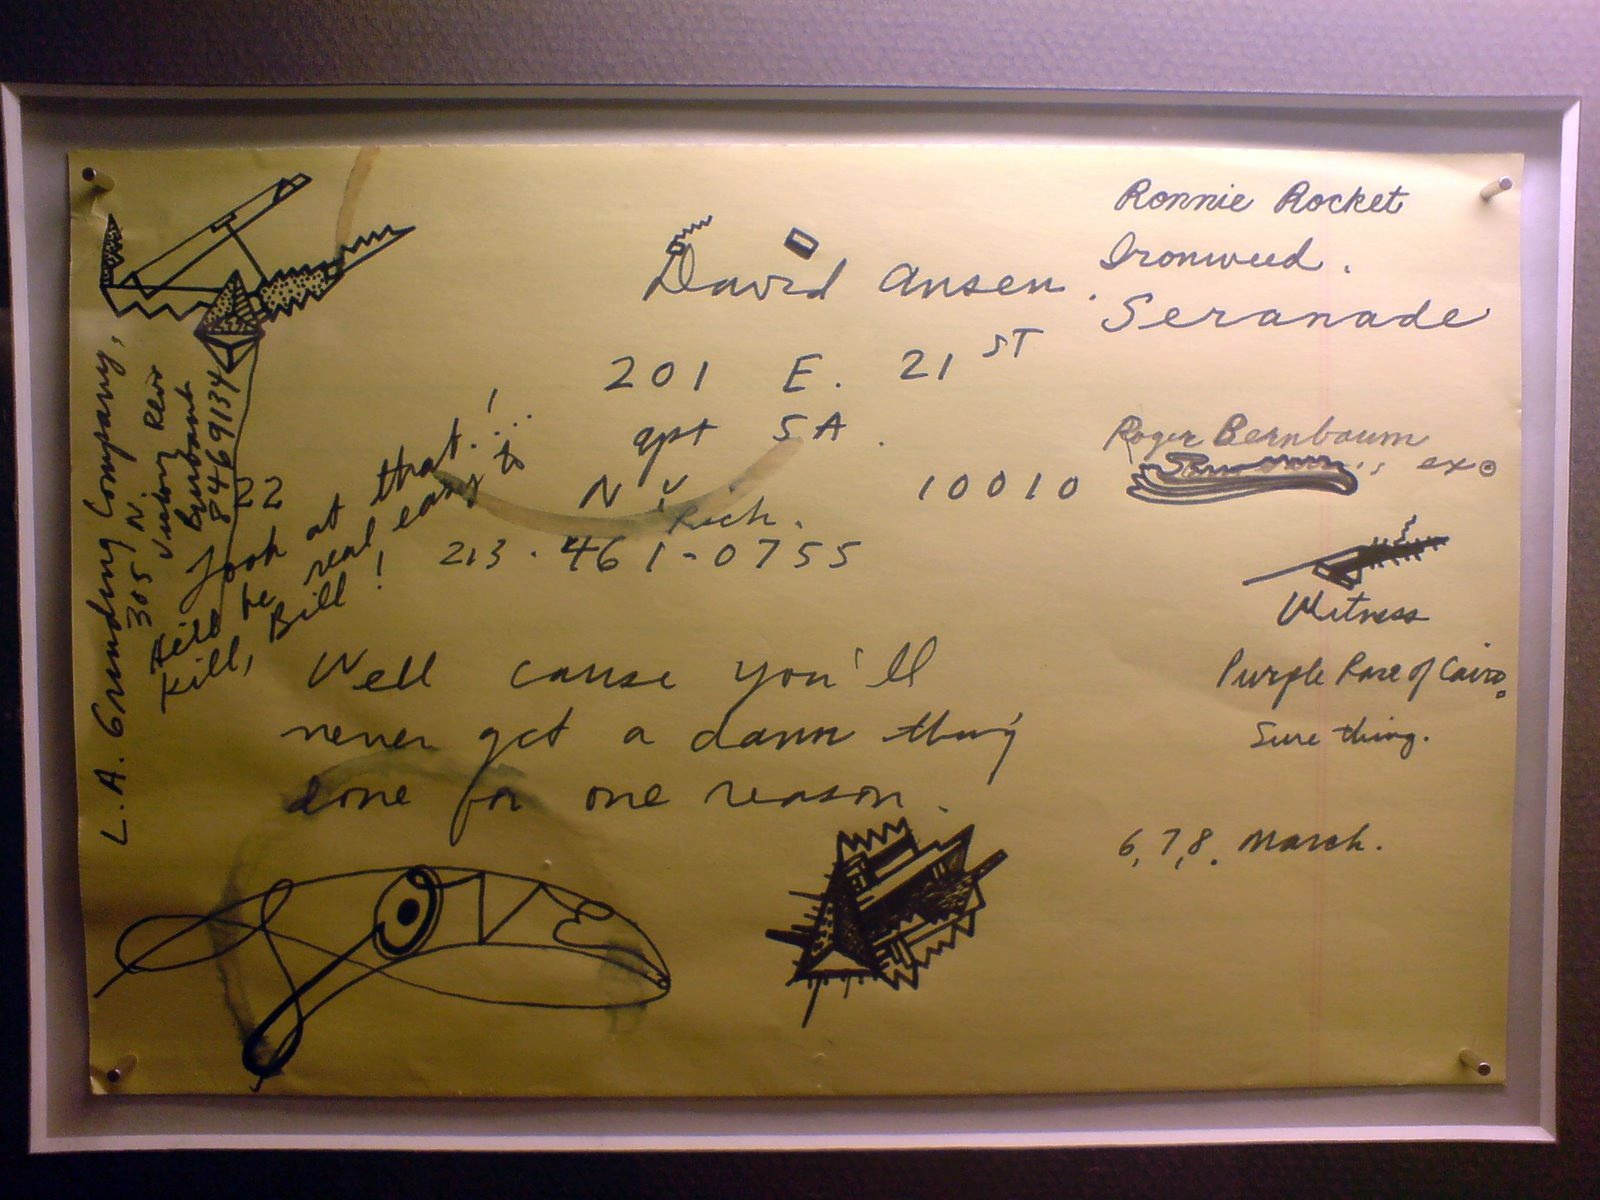 Ronnie Rocket
Ironweed.
Seranade
David Ansen.
201 E. 21 ST
apt 5A.
N Y 10010
Rich.
213.461-0755
Roger Bernbaum
exo
Witness
Purple Rose of Cairo.
Sure thing.
6,7,8. March.
L.A. Grinding Company,
305 N.
Burbank
8469134
22
Look at that!...
He'll be real easy to
kill, Bill!
Well cause you'll
never get a damn thing
done for one reason.